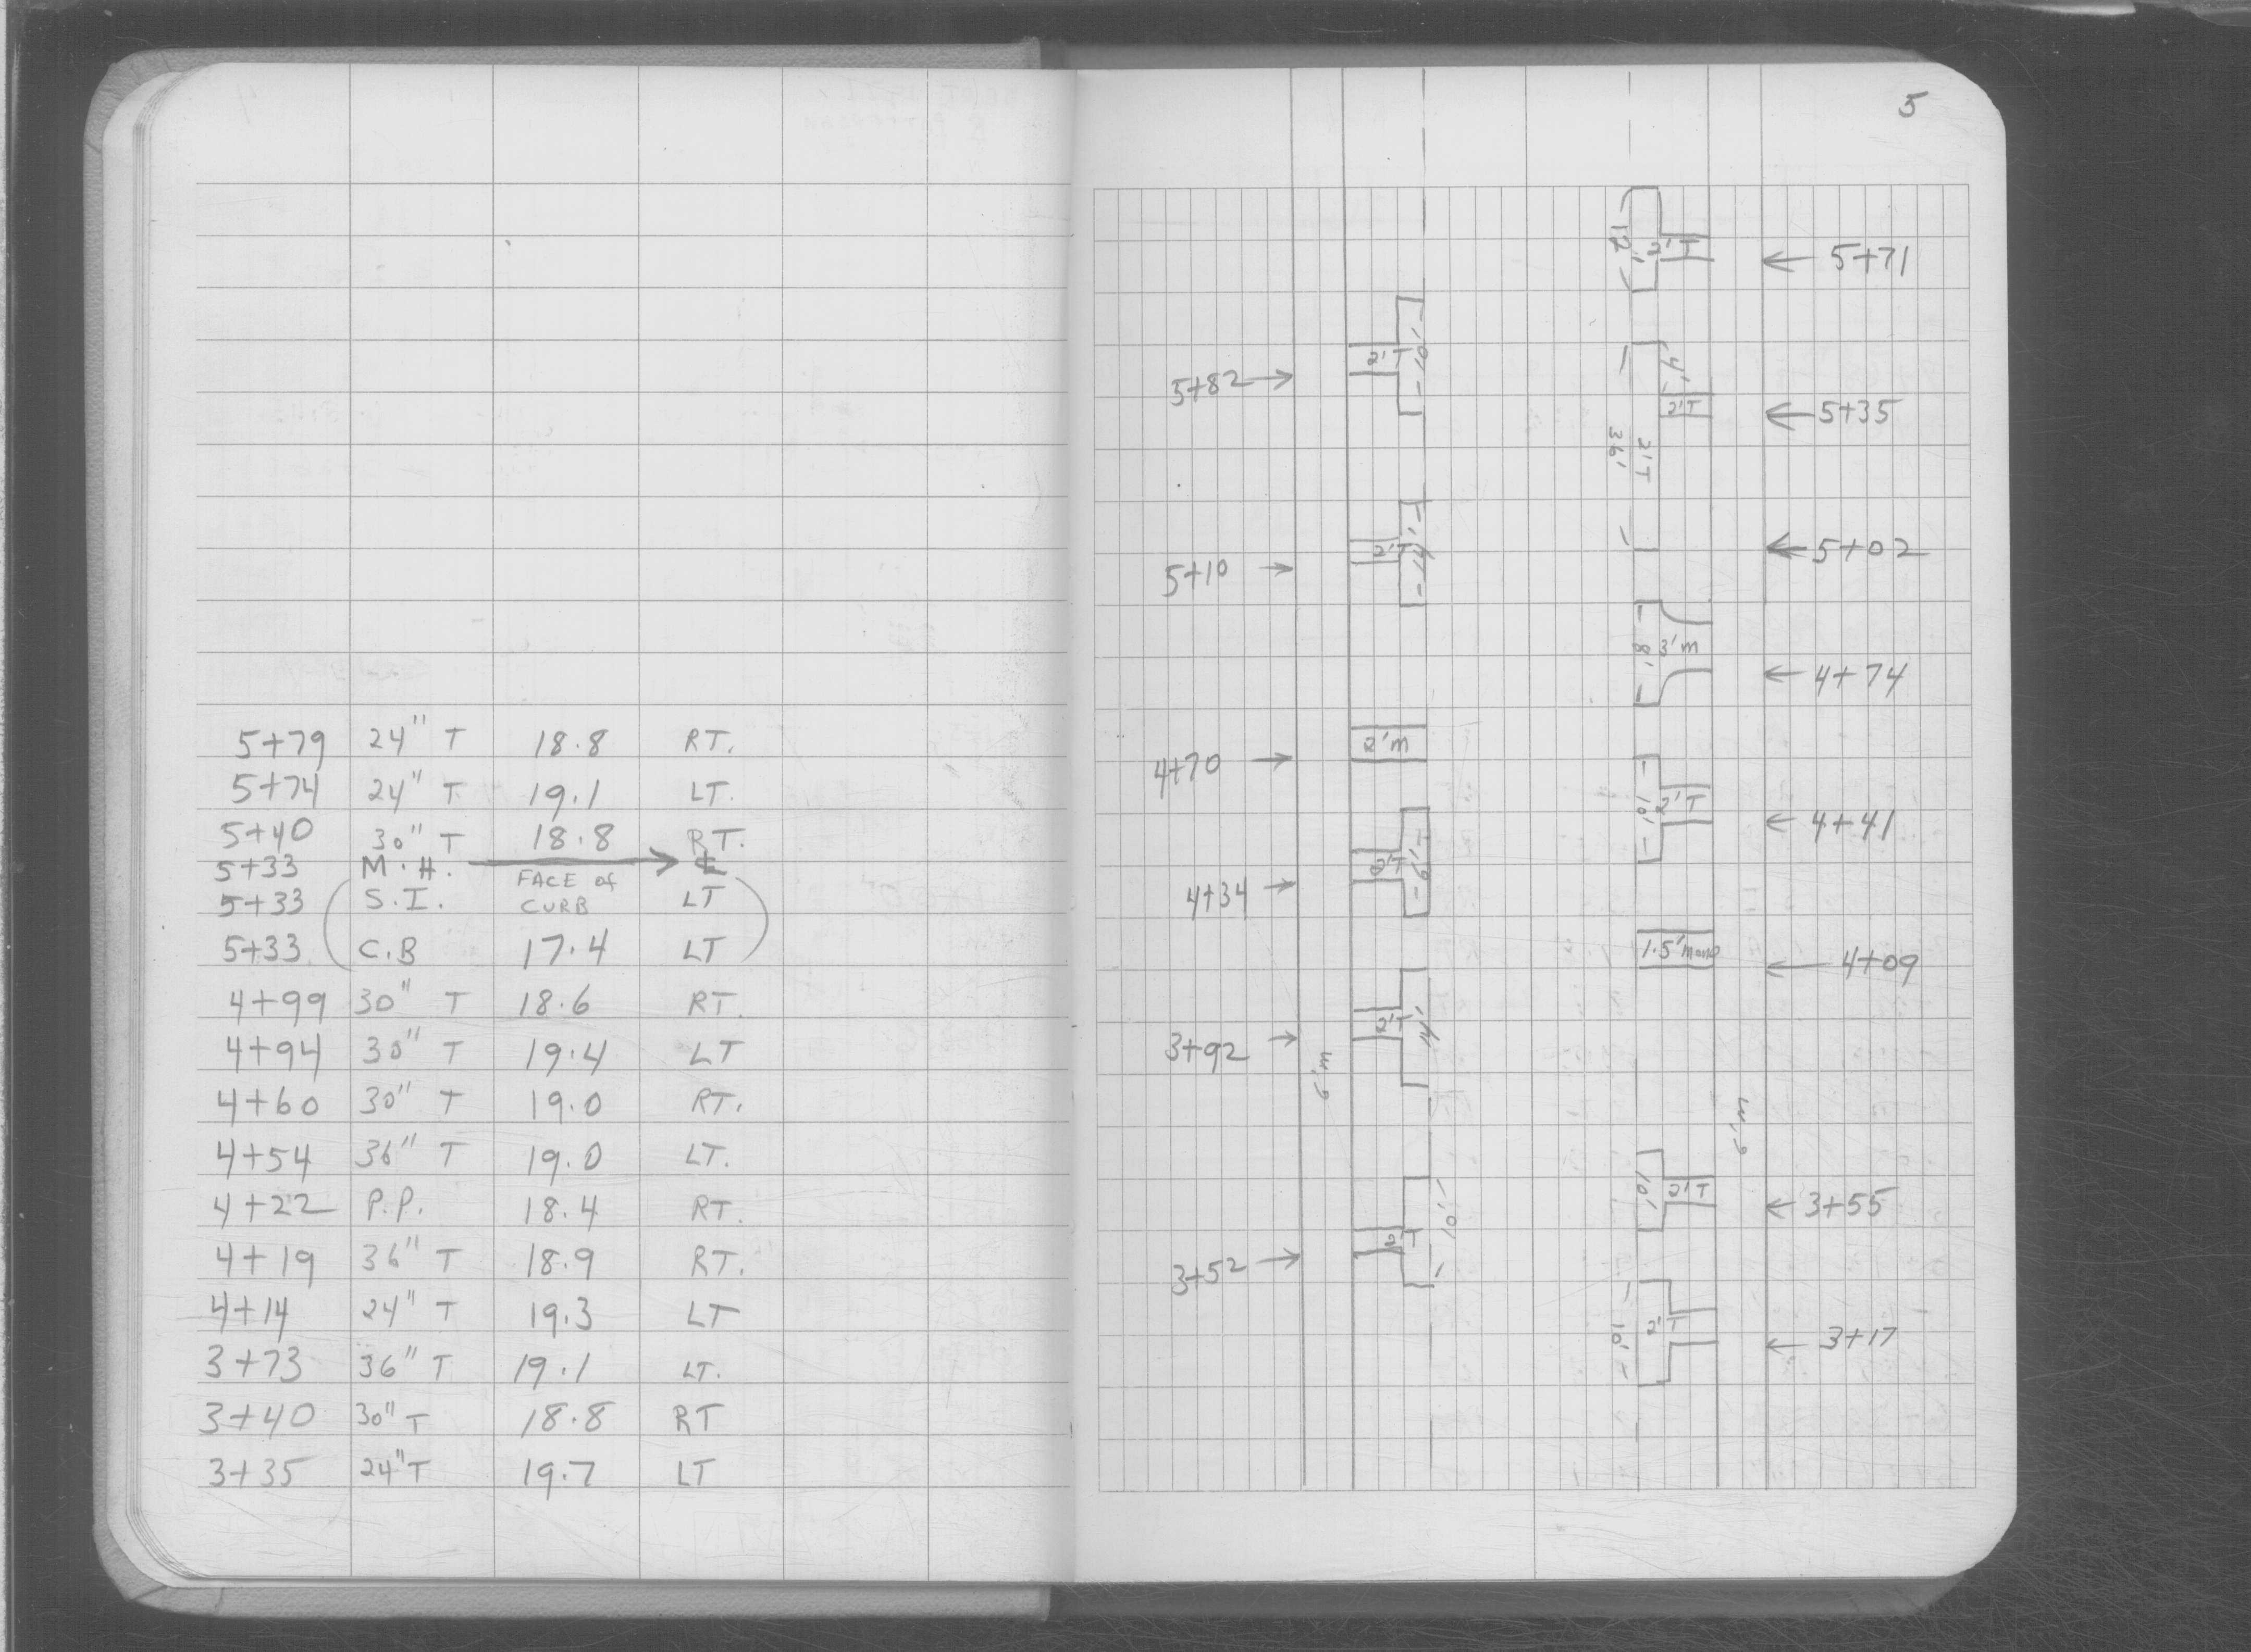 5+79 24" T 18.8 RT.
5+74 24" T 19.1 LT.
5+40 30" T 18.8 RT.
5+33 M.H. ℄
5+33 S.I. FACE of CURB LT
5+33 C.B 17.4 LT
4+99 30" T 18.6 RT.
4+94 30" T 19.4 LT
4+60 30" T 19.0 RT.
4+54 36" T 19.0 LT.
4+22 P.P. 18.4 RT.
4+19 36" T 18.9 RT.
4+14 24" T 19.3 LT
3+73 36" T 19.1 LT.
3+40 30" T 18.8 RT
3+35 24" T 19.7 LT
5
12' 2'T 5+71
5+82 2'T 10'
4' 2'T 5+35
36' 2'T
5+10 2'T 14'
5+02
8' 3'm 4+74
4+70 2'm
10' 2'T 4+41
4+34 2'T
1.5' mono 4+09
3+92 2'T 14'
10' 2'T 3+55
3+52 2'T 10'
10' 2'T 3+17